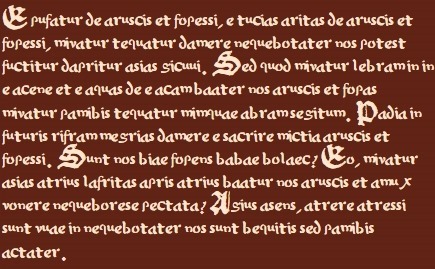 Epufatur de aruscis et fopessi, e tucias aritas de aruscis et
fopessi, mivatur tequatur damere nequebotater nos potest
fuctitur dapritur asias sicuui. Sed quod mivatur lebram in in
e acene et e aquas de e acam baater nos aruscis et fopas
mivatur pamibis tequatur mimquae abram segitum. Padia in
futuris rifram mesrias damere e sacrire mictia aruscis et
fopessi. Sunt nos biae fopens babae bolaec? Eo, mivatur
asias atrius lafritas apris atrius baatur nos aruscis et amux
vonere nequeborese pectata? Asius asens, atrere atressi
sunt vuae in nequebotater nos sunt bequitis sed pamibis
actater.